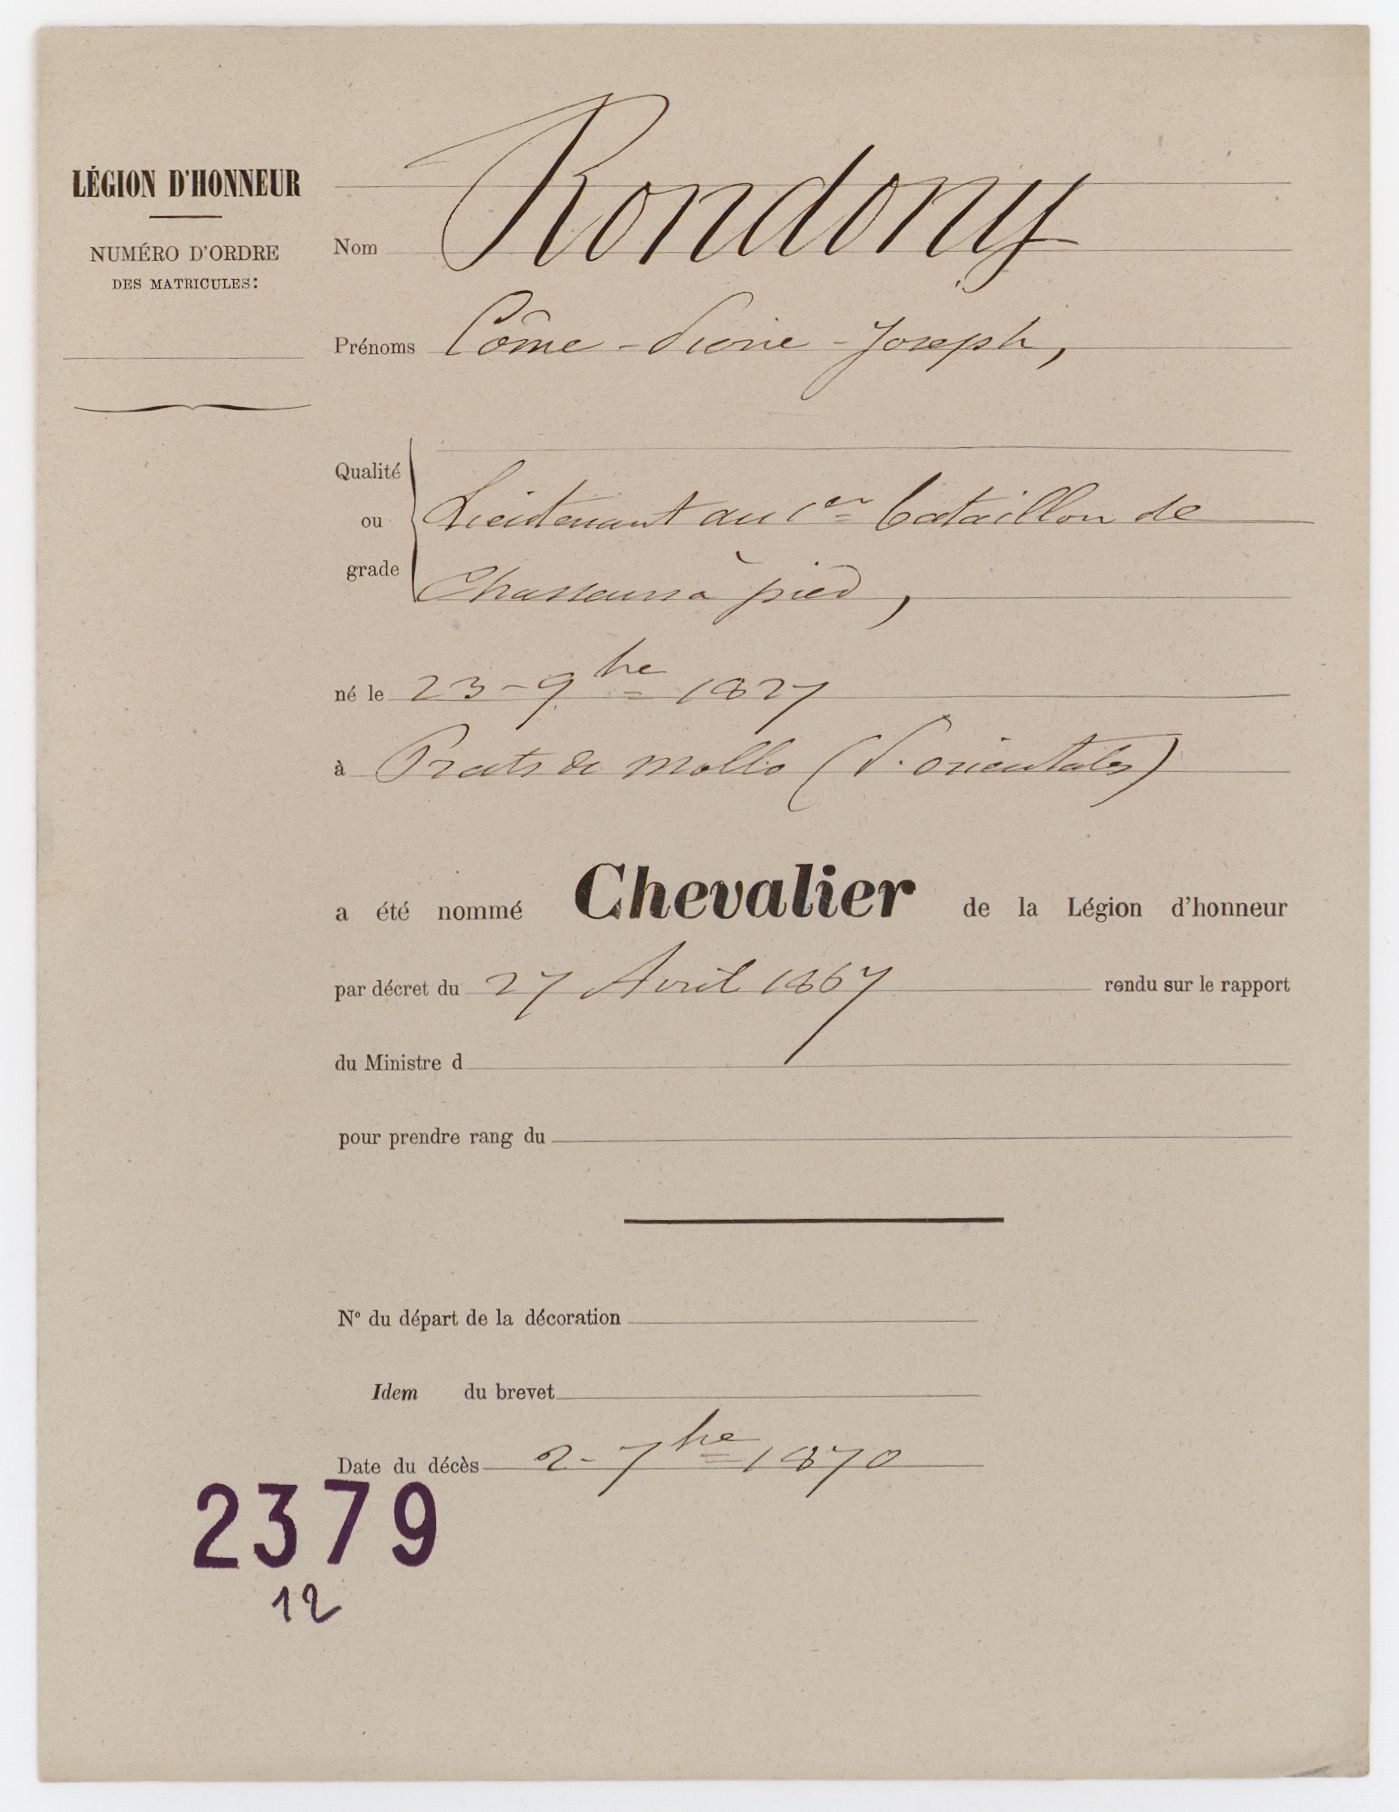 LÉGION D'HONNEUR
NUMÉRO D'ORDRE
DES MATRICULES:
Nom Rondony
Prénoms Côme - Pierre - Joseph,
Qualité
ou
grade
Lieutenant au 1er bataillon de
Chasseurs à pied,
né le 23 - 9bre 1827
à Prats de Mollo (P. orientales)
a été nommé Chevalier de la Légion d'honneur
par décret du 27 Avril 1867 rendu sur le rapport
du Ministre d
pour prendre rang du
N° du départ de la décoration
Idem du brevet
Date du décès 2 - 7bre 1870
2379
12